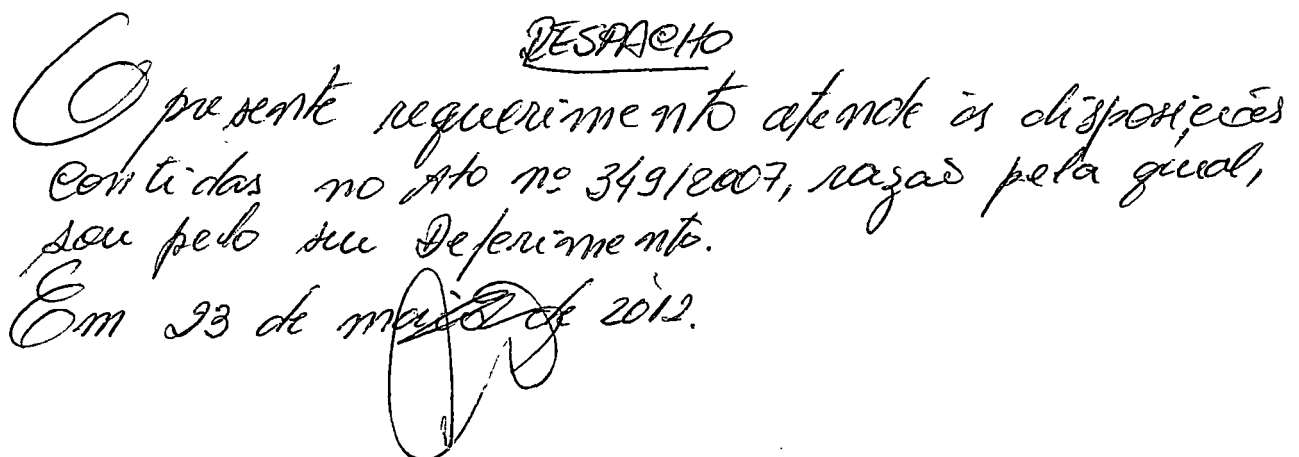 DESPACHO
O presente requerimento atende às disposições
contidas no Ato nº 349/2007, razão pela qual,
sou pelo seu Deferimento.
Em 23 de maio de 2012.